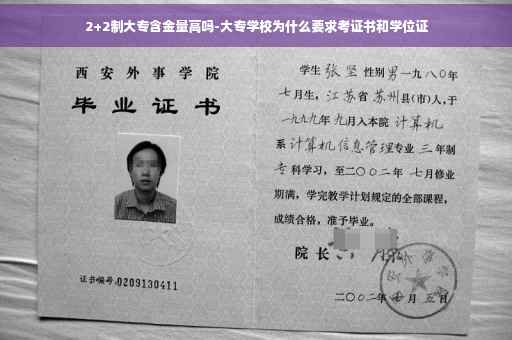 2+2制大专含金量高吗-大专学校为什么要求考证书和学位证
西安外事学院
毕业证书
证书编号:0209130411
学生 张坚 性别 男 一九八〇年
七月生，江苏省 苏州 县(市)人，于
一九九九年 九月入本院 计算机
系 计算机信息管理专业 三 年制
专 科学习，至二〇〇二年 七月修业
期满，学完教学计划规定的全部课程，
成绩合格，准予毕业。
院 长
二〇〇二年 月 五日